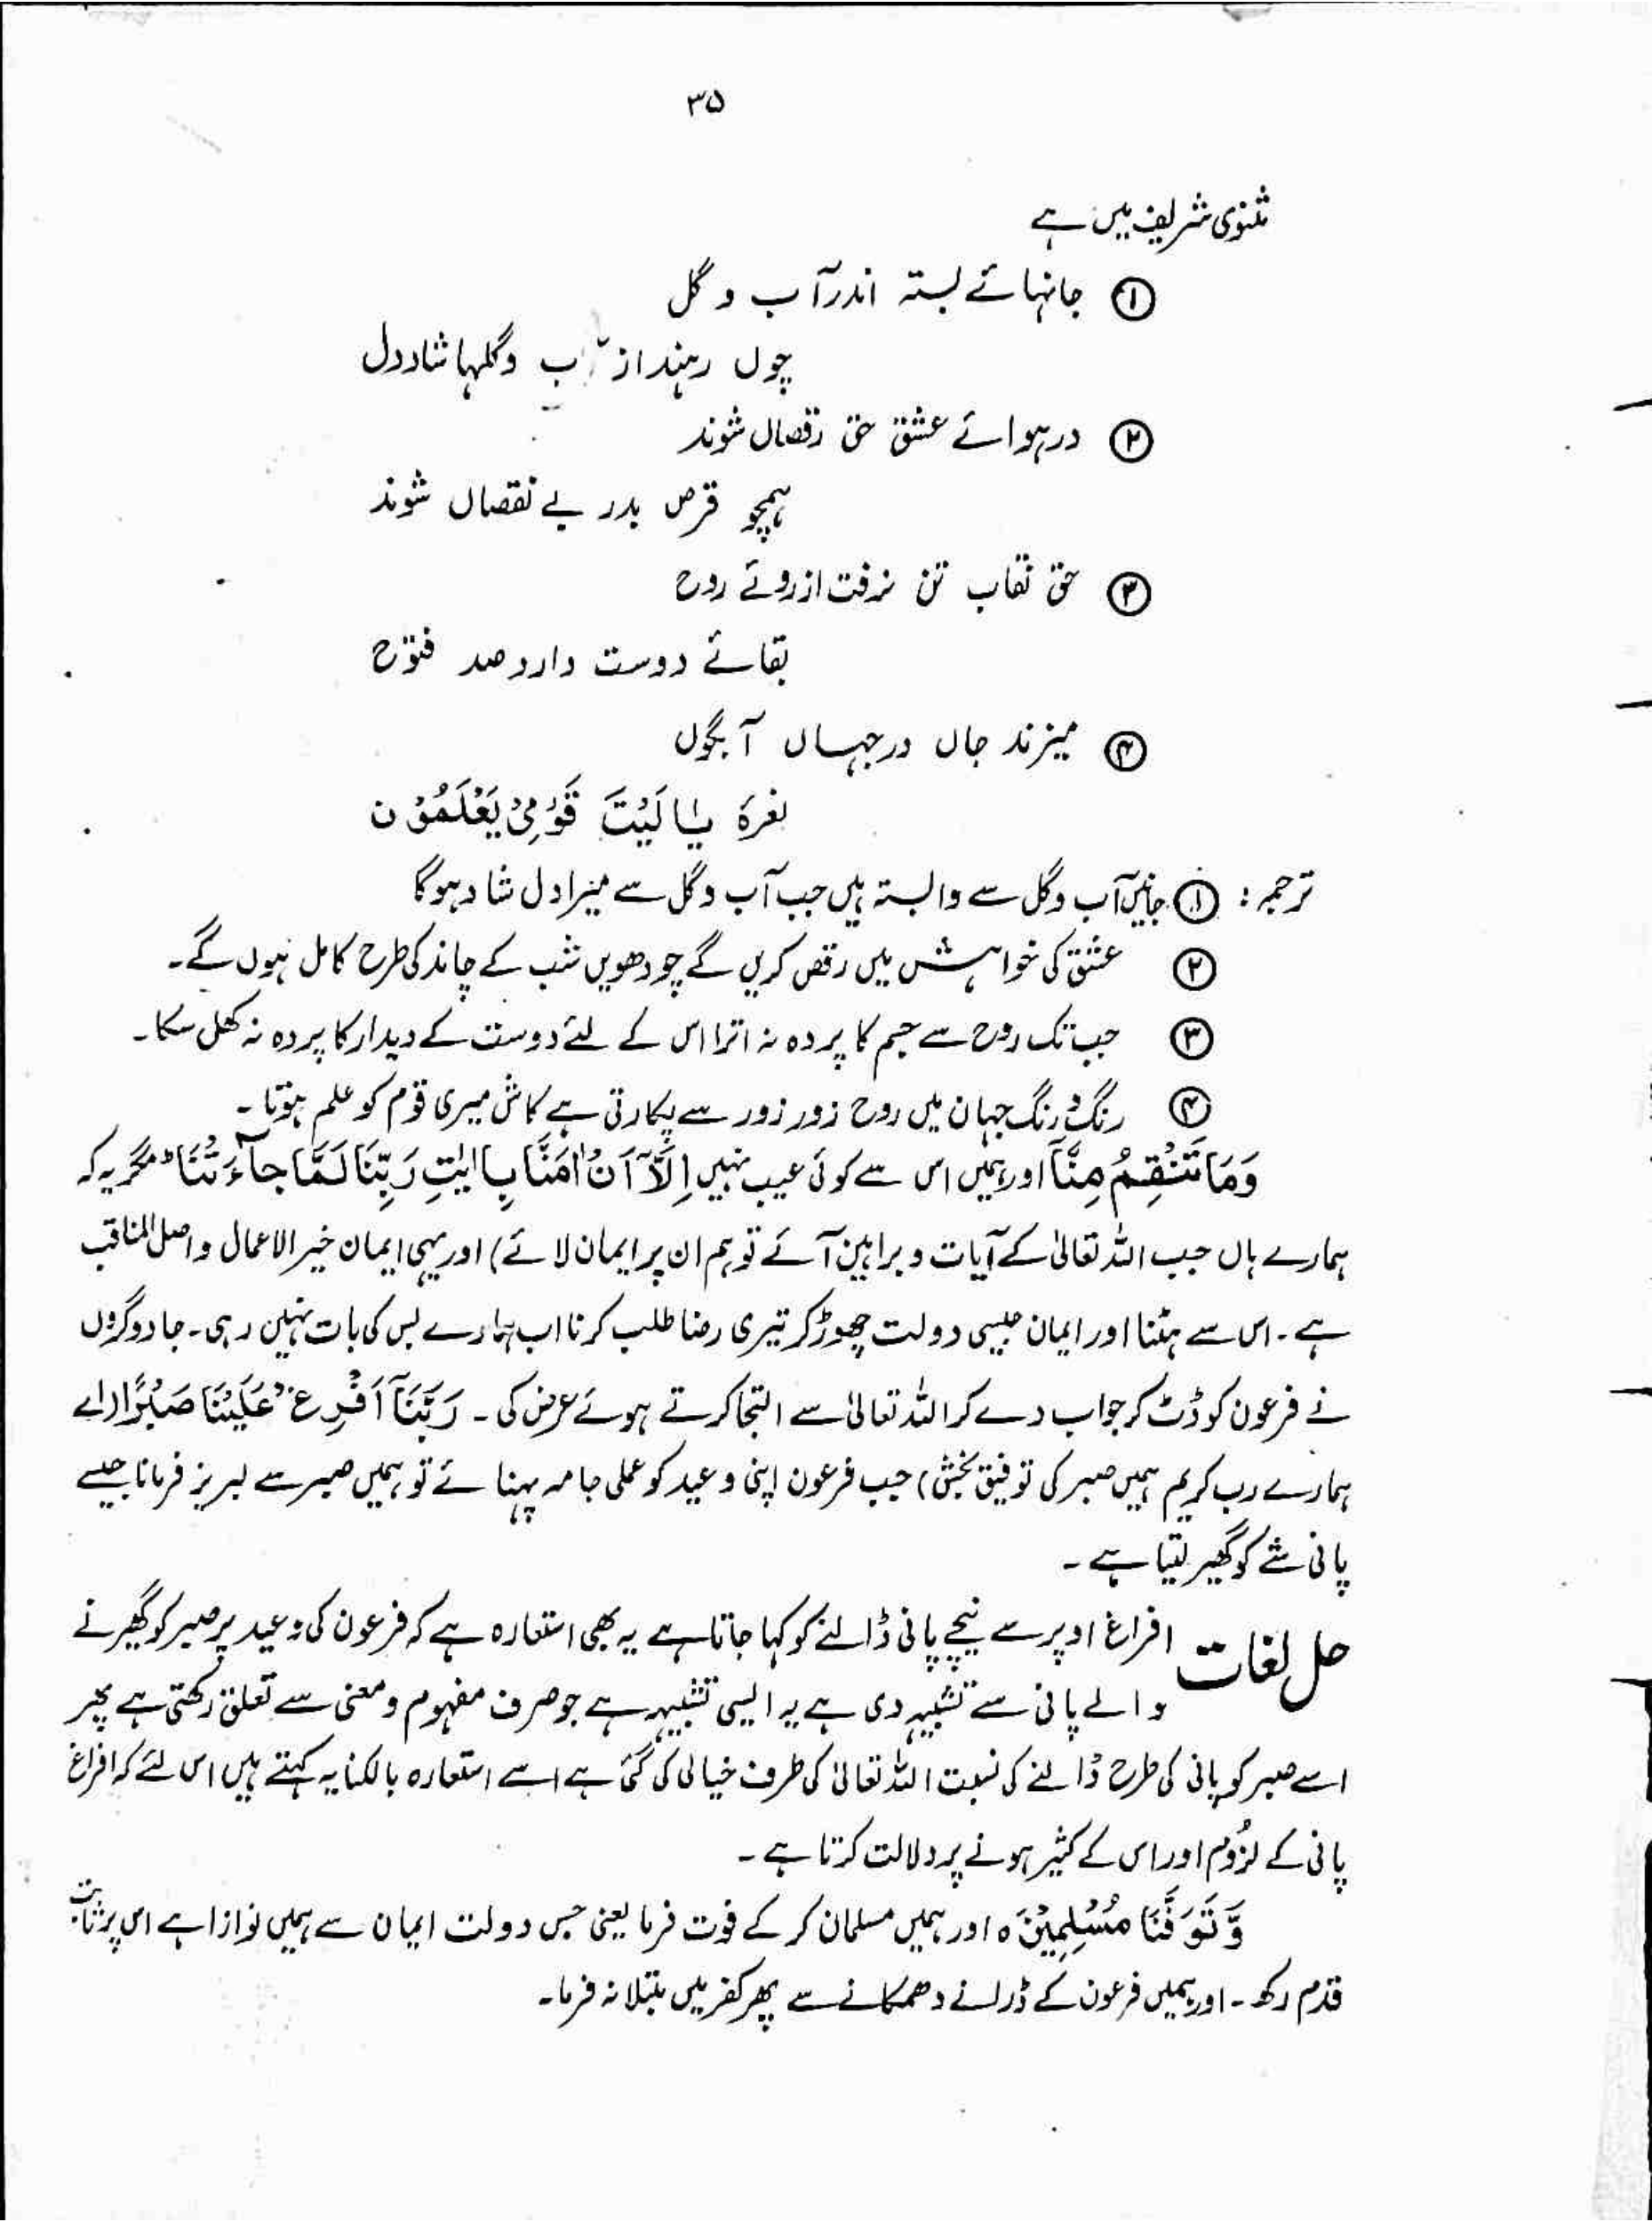 ۳۵
ثنوی شریف میں ہے
① جانہائے بستہ اندر آب و گل
چوں رہند از آب و گلہا شاد دل
② در ہوائے عشق حق رقصاں شوند
ہمچو قرص بدر بے نقصاں شوند
③ حق نقاب تن نرفت از روئے روح
بقائے دوست دارد صد فتوح
④ میزند جاں در جہاں آبگوں
نعرۂ یٰا لَیْتَ قَوْمِیْ یَعْلَمُوْن
ترجمہ: ① جانیں آب و گل سے وابستہ ہیں جب آب و گل سے میرا دل شاد ہوگا
② عشق کی خواہش میں رقص کریں گے چودھویں شب کے چاند کی طرح کامل ہوں گے۔
③ جب تک روح سے جسم کا پردہ نہ اترا اس کے لئے دوست کے دیدار کا پردہ نہ کھل سکا۔
④ رنگ و رنگ جہان میں روح زور زور سے پکارتی ہے کاش میری قوم کو علم ہوتا۔
وَمَا تَنْقِمُ مِنَّآ اور ہمیں اس سے کوئی عیب نہیں اِلَّآ اَنْ اٰمَنَّا بِاٰیٰتِ رَبِّنَا لَمَّا جَآءَتْنَا ؕ مگر یہ کہ
ہمارے ہاں جب اللہ تعالیٰ کے آیات و براہین آئے تو ہم ان پر ایمان لائے) اور یہی ایمان خیر الاعمال و اصل المناقب
ہے۔ اس سے ہٹنا اور ایمان جیسی دولت چھوڑ کر تیری رضا طلب کرنا اب ہمارے بس کی بات نہیں رہی۔ جادوگروں
نے فرعون کو ڈٹ کر جواب دے کر اللہ تعالیٰ سے التجا کرتے ہوئے عرض کی۔ رَبَّنَآ اَفْرِغْ عَلَیْنَا صَبْرًا (اے
ہمارے رب کریم ہمیں صبر کی توفیق بخش) جب فرعون اپنی وعید کو عملی جامہ پہنائے تو ہمیں صبر سے لبریز فرمانا جیسے
پانی شے کو گھیر لیتا ہے۔
حل لغات افراغ اوپر سے نیچے پانی ڈالنے کو کہا جاتا ہے یہ بھی استعارہ ہے کہ فرعون کی وعید پر صبر کو گھیرنے
والے پانی سے تشبیہ دی ہے یہ ایسی تشبیہہ ہے جو صرف مفہوم و معنی سے تعلق رکھتی ہے پھر
اسے صبر کو پانی کی طرح ڈالنے کی نسبت اللہ تعالیٰ کی طرف خیالی کی گئی ہے اسے استعارہ بالکنایہ کہتے ہیں اس لئے کہ افراغ
پانی کے لزُوم اور اس کے کثیر ہونے پر دلالت کرتا ہے۔
وَّ تَوَفَّنَا مُسْلِمِیْنَ ہ اور ہمیں مسلمان کر کے فوت فرما یعنی جس دولت ایمان سے ہمیں نوازا ہے اس پر ثابت
قدم رکھ۔ اور ہمیں فرعون کے ڈرانے دھمکانے سے پھر کفر میں مبتلا نہ فرما۔